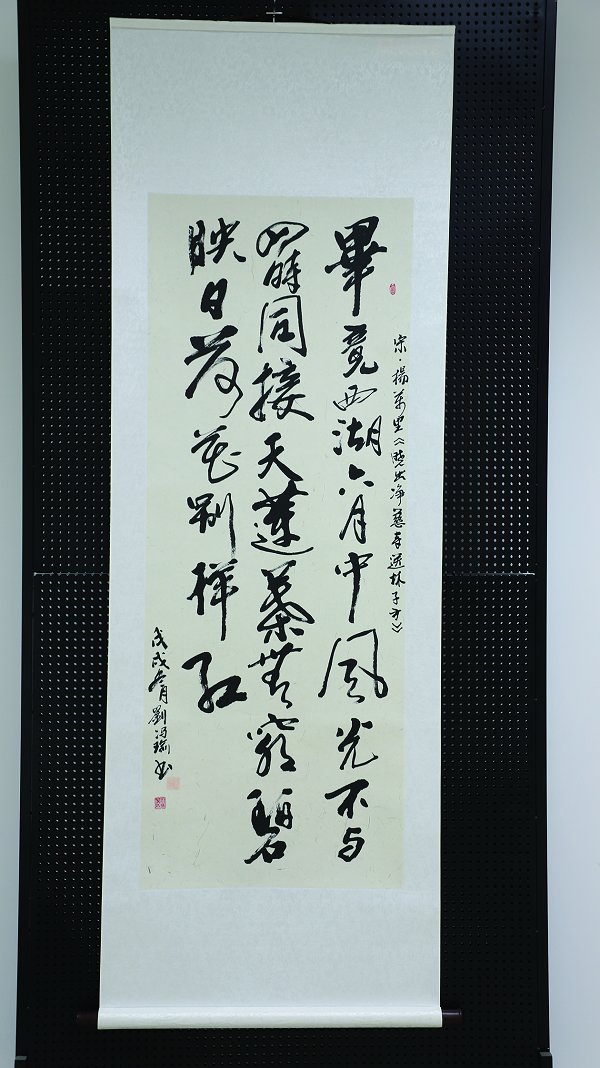 宋·楊萬里《曉出净慈寺送林子方》
畢竟西湖六月中風光不与
四時同接天蓮葉無窮碧
映日荷花别樣紅
戊戌冬月劉冯瑞书